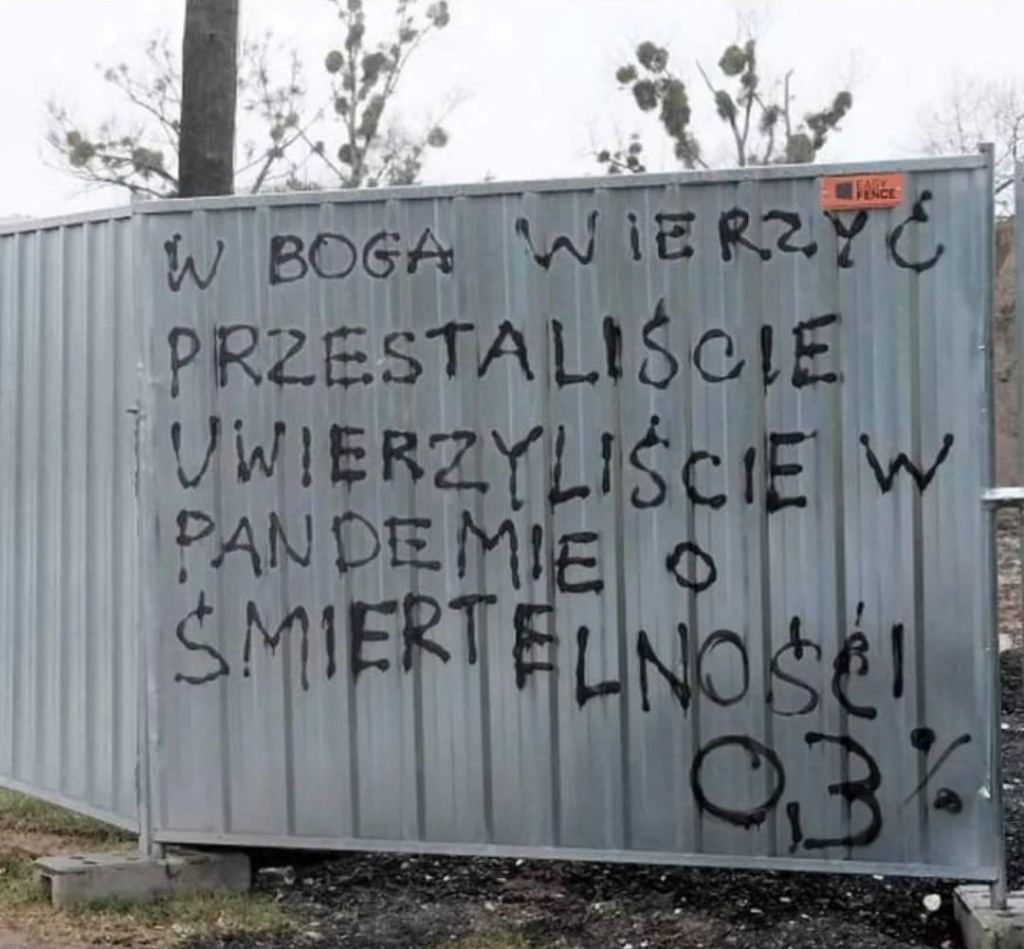 EASY FENCE
W BOGA WIERZYĆ
PRZESTALIŚCIE
UWIERZYLIŚCIE W
PANDEMIE O
ŚMIERTELNOŚĆI
0,3%